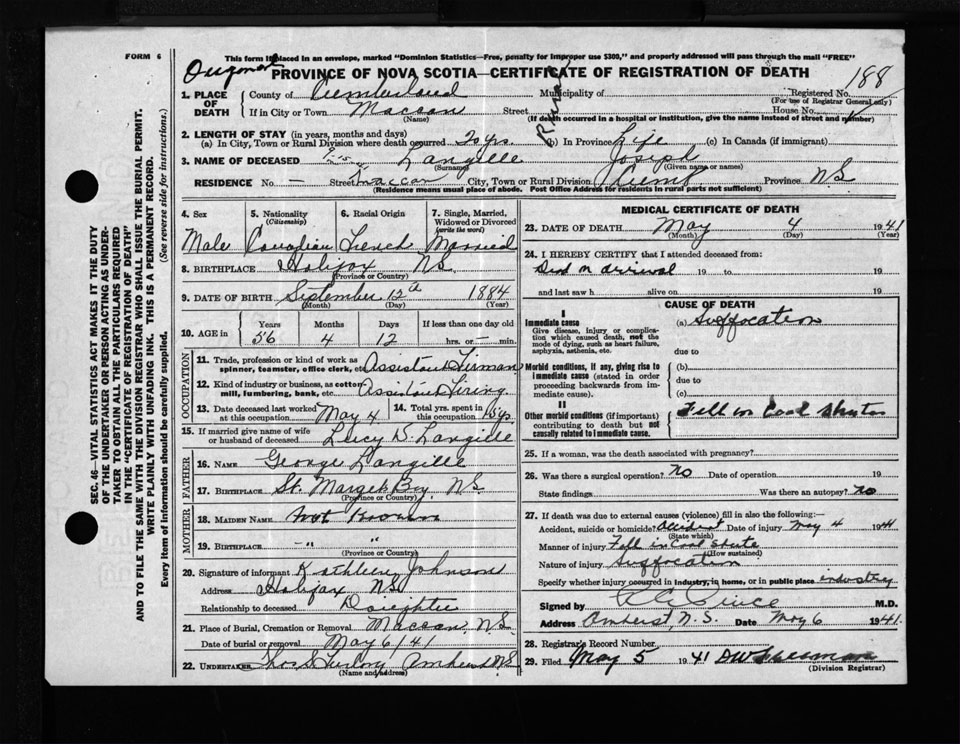 FORM 6
This form if placed in an envelope, marked "Dominion Statistics—Free, penalty for improper use $300," and properly addressed will pass through the mail "FREE"
PROVINCE OF NOVA SCOTIA—CERTIFICATE OF REGISTRATION OF DEATH
188
Registered No.
(For use of Registrar General only)
1. PLACE OF DEATH
County of Cumberland Municipality of
If in City or Town Maccan Street House No.
(Name)
(If death occurred in a hospital or institution, give the name instead of street and number)
2. LENGTH OF STAY (in years, months and days)
(a) In City, Town or Rural Division where death occurred 20 yrs (b) In Province Life (c) In Canada (if immigrant)
3. NAME OF DECEASED Langille Joseph
(Surname) (Given name or names)
RESIDENCE No. — Street Maccan City, Town or Rural Division Cumb Province NS
(Residence means usual place of abode. Post Office Address for residents in rural parts not sufficient)
4. Sex Male
5. Nationality (Citizenship) Canadian
6. Racial Origin French
7. Single, Married, Widowed or Divorced (write the word) Married
8. BIRTHPLACE Halifax NS
(Province or Country)
9. DATE OF BIRTH September 12th 1884
(Month) (Day) (Year)
10. AGE in Years Months Days If less than one day old
56 4 12 hrs. or — min.
OCCUPATION
11. Trade, profession or kind of work as spinner, teamster, office clerk, etc. Assistant Firman
12. Kind of industry or business, as cotton mill, lumbering, bank, etc. Assistant Firing
13. Date deceased last worked at this occupation May 4
14. Total yrs. spent in this occupation
15. If married give name of wife or husband of deceased Lucy D. Langille
FATHER
16. NAME George Langille
17. BIRTHPLACE St. Margets Bay NS
(Province or Country)
MOTHER
18. MAIDEN NAME Not Known
19. BIRTHPLACE —" "
(Province or Country)
20. Signature of informant Kathleen Johnson
Address Halifax NS
Relationship to deceased Daughter
21. Place of Burial, Cremation or Removal Maccan, N.S.
Date of burial or removal May 6/41
22. UNDERTAKER Amherst NS
(Name and address)
MEDICAL CERTIFICATE OF DEATH
23. DATE OF DEATH May 4 1941
(Month) (Day) (Year)
24. I HEREBY CERTIFY that I attended deceased from:
Dead on arrival 19 to 19
and last saw h alive on 19
CAUSE OF DEATH
I
Immediate cause (a) Suffocation
Give disease, injury or complication which caused death, not the mode of dying, such as heart failure, asphyxia, asthenia, etc.
due to
Morbid conditions, if any, giving rise to immediate cause (stated in order proceeding backwards from immediate cause).
(b)
due to
(c)
II
Other morbid conditions (if important) contributing to death but not causally related to immediate cause.
Fell in Coal Shute
25. If a woman, was the death associated with pregnancy?
26. Was there a surgical operation? No Date of operation 19
State findings Was there an autopsy? no
27. If death was due to external causes (violence) fill in also the following:—
Accident, suicide or homicide? Accident Date of injury May 4 1941
(State which)
Manner of injury Fell in Coal Shute
(How sustained)
Nature of injury Suffocation
Specify whether injury occurred in industry, in home, or in public place industry
Signed by M.D.
Address Amherst, N.S. Date May 6 1941.
28. Registrar's Record Number
29. Filed May 5 1941
(Division Registrar)
SEC. 46—VITAL STATISTICS ACT MAKES IT THE DUTY
OF THE UNDERTAKER OR PERSON ACTING AS UNDER-
TAKER TO OBTAIN ALL THE PARTICULARS REQUIRED
IN THE "CERTIFICATE OF REGISTRATION OF DEATH"
AND TO FILE THE SAME WITH THE DIVISION REGISTRAR WHO SHALL ISSUE THE BURIAL PERMIT.
WRITE PLAINLY WITH UNFADING INK. THIS IS A PERMANENT RECORD.
Every item of information should be carefully supplied. (See reverse side for instructions.)